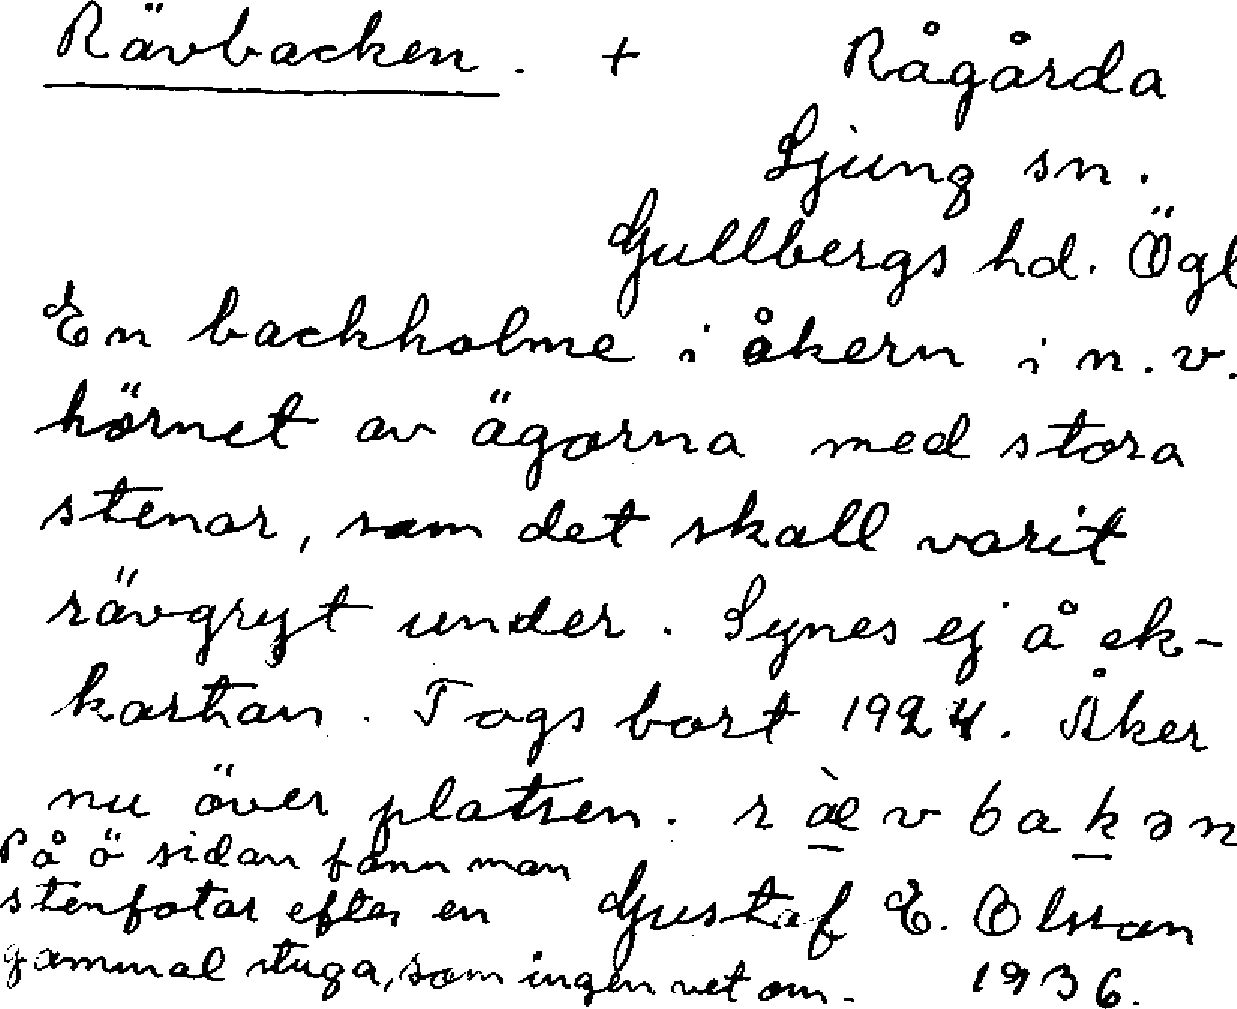 Rävbacken. + Rågårda
Ljung sn.
Gullbergs hd. Ögl
En backholme i åkern i n.v.
hörnet av ägorna med stora
stenar, som det skall varit
rävgryt under. Synes ej å ek-
kartan. Togs bort 1924. Åker
nu över platsen. ràevbakən
På ö sidan fann man
stenfotar efter en
gammal stuga, som ingen vet om.
Gustaf E. Olsson
1936.